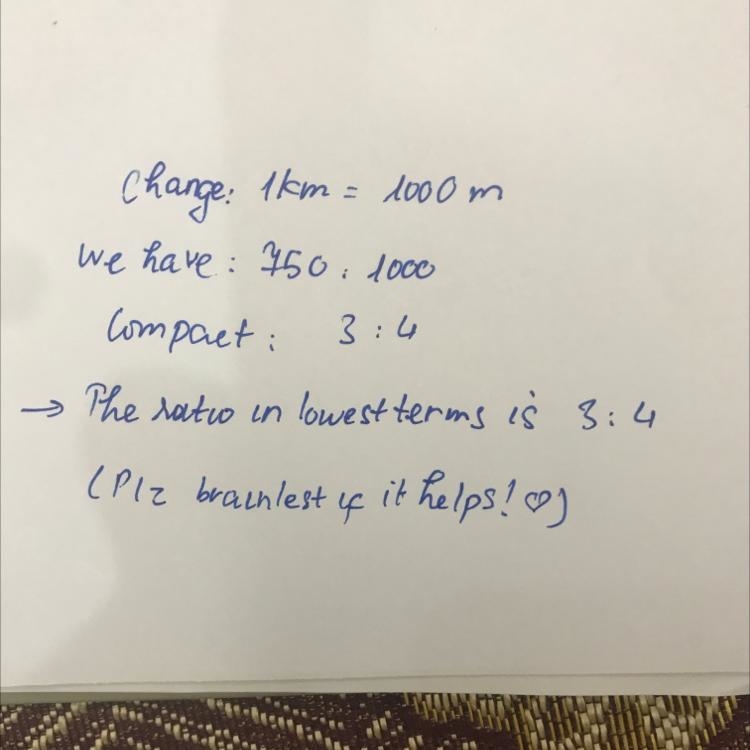 Change: 1km = 1000 m
We have: 750 : 1000
Compact: 3 : 4
→ The ratio in lowest terms is 3 : 4
(Plz brainlest if it helps! ♡)